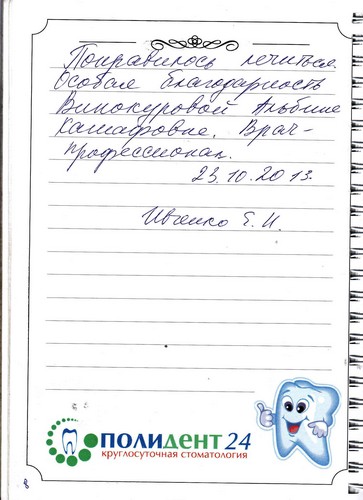 Понравилось лечиться.
Особая благодарность
Винокуровой Альбине
Кашафовне. Врач-
профессионал.
23.10.2013.
Ивченко Е. И.
ПОЛИДЕНТ 24
круглосуточная стоматология
8